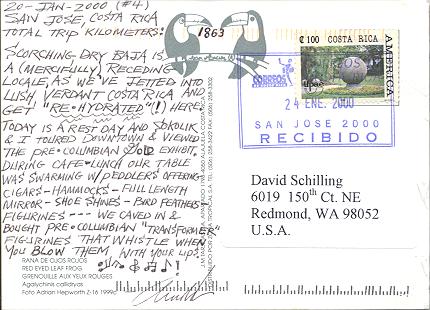 20-JAN-2000 (#4)
SAN JOSE, COSTA RICA
TOTAL TRIP KILOMETERS: 1863
SCORCHING DRY BAJA IS
A (MERCIFULLY) RECEDING
LOCALE, AS WE'VE JETTED INTO
LUSH VERDANT COSTA RICA AND
GET "RE-HYDRATED"(!) HERE.
TODAY IS A REST DAY AND SOKOLIK
& I TOURED DOWNTOWN & VIEWED
THE PRE-COLUMBIAN GOLD EXHIBIT.
DURING CAFE-LUNCH OUR TABLE
WAS SWARMING W/ PEDDLERS OFFERING
CIGARS - HAMMOCKS - FULL LENGTH
MIRROR - SHOE SHINES - BIRD FEATHERS -
FIGURINES --- WE CAVED IN &
BOUGHT PRE-COLUMBIAN "TRANSFORMER"
FIGURINES THAT WHISTLE WHEN
YOU BLOW THEM WITH YOUR LIPS.
RANA DE OJOS ROJOS
RED EYED LEAF FROG
GRENOUILLE AUX YEUX ROUGES
Agalychnis callidryas
Foto Adrian Hepworth Z-16 1999
₡100 COSTA RICA
AMERICA
CORREOS
24 ENE. 2000
SAN JOSE 2000
RECIBIDO
David Schilling
6019 150th Ct. NE
Redmond, WA 98052
U.S.A.